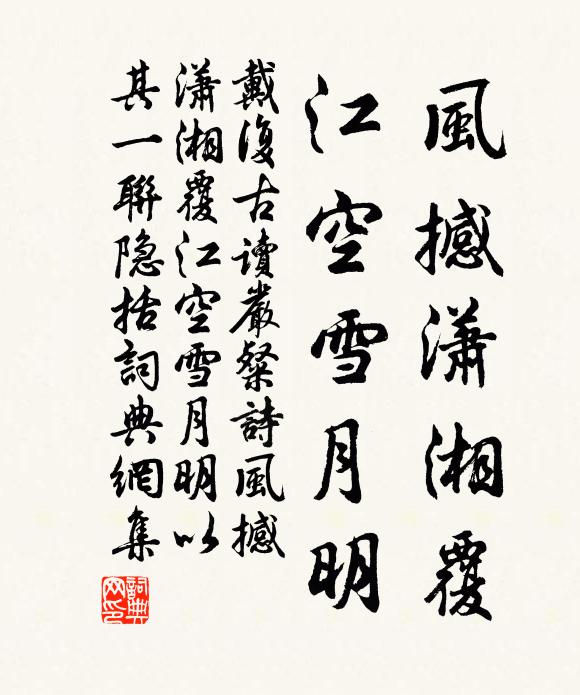 風撼瀟湘覆
江空雪月明
戴復古讀嚴粲詩風撼
瀟湘覆江空雪月明以
其一聯隐括詞典網集
詞典
网印